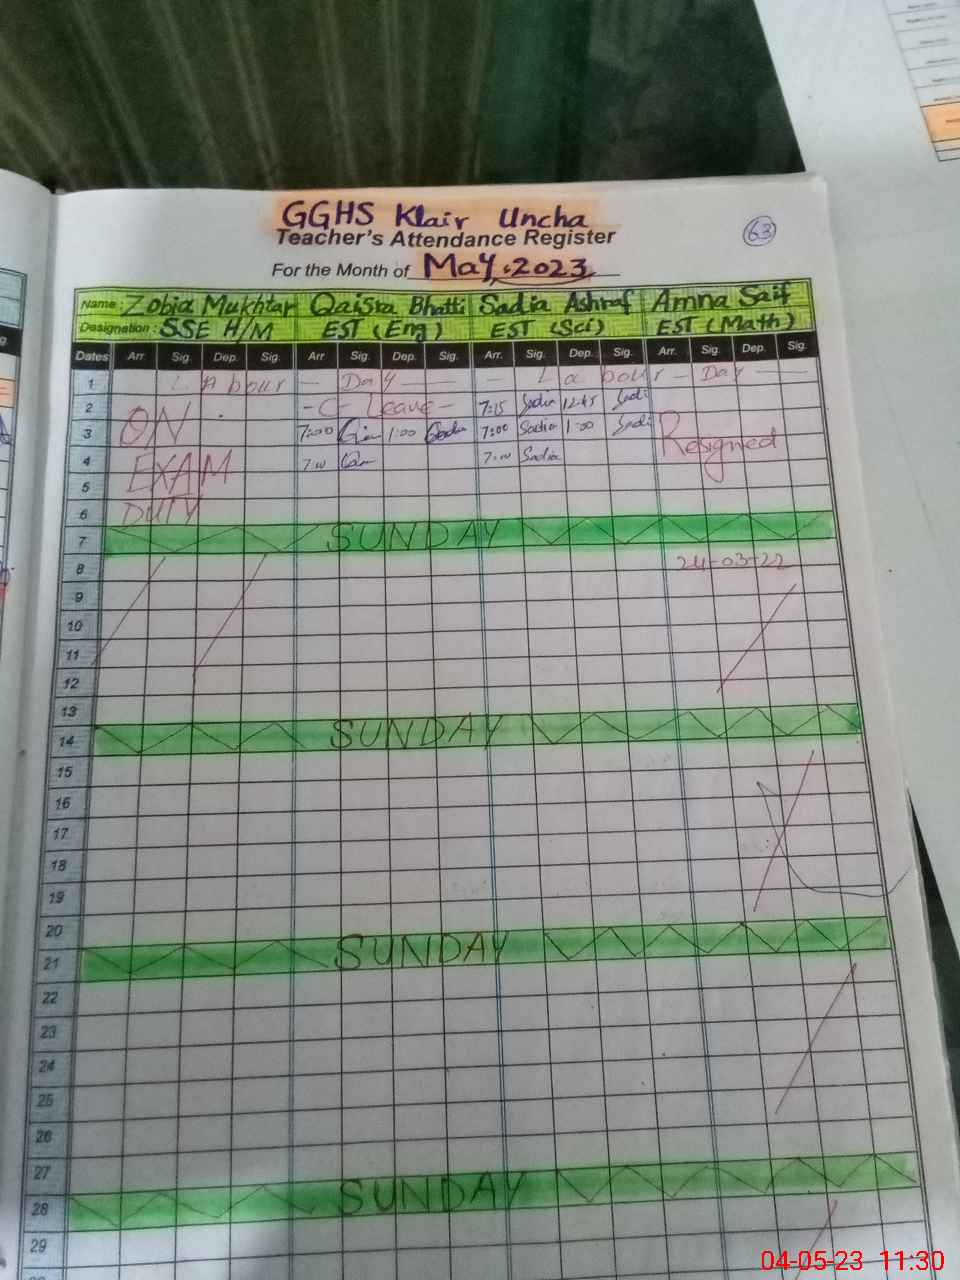 GGHS Klair Uncha
Teacher's Attendance Register
63
For the Month of May, 2023
Name: Zobia Mukhtar Qaisra Bhatti Sadia Ashraf Amna Saif
Designation: SSE H/M EST (Eng) EST (Sci) EST (Math)
Dates Arr. Sig. Dep. Sig. Arr Sig. Dep. Sig. Arr. Sig. Dep. Sig. Arr. Sig. Dep. Sig.
1 LAbour - Day - - Labour - Day -
2 ON - C - Leave - 7:15 Sadia 12:45 Sadi
3 7:00 1:00 7:00 Sadia 1:00 Sadi Resigned
4 EXAM 7:00 7:00 Sadia
5
6 DUTY
7 SUNDAY
8 24-03-22
9
10
11
12
13
14 SUNDAY
15
16
17
18
19
20
21 SUNDAY
22
23
24
25
26
27
28 SUNDAY
29
04-05-23 11:30